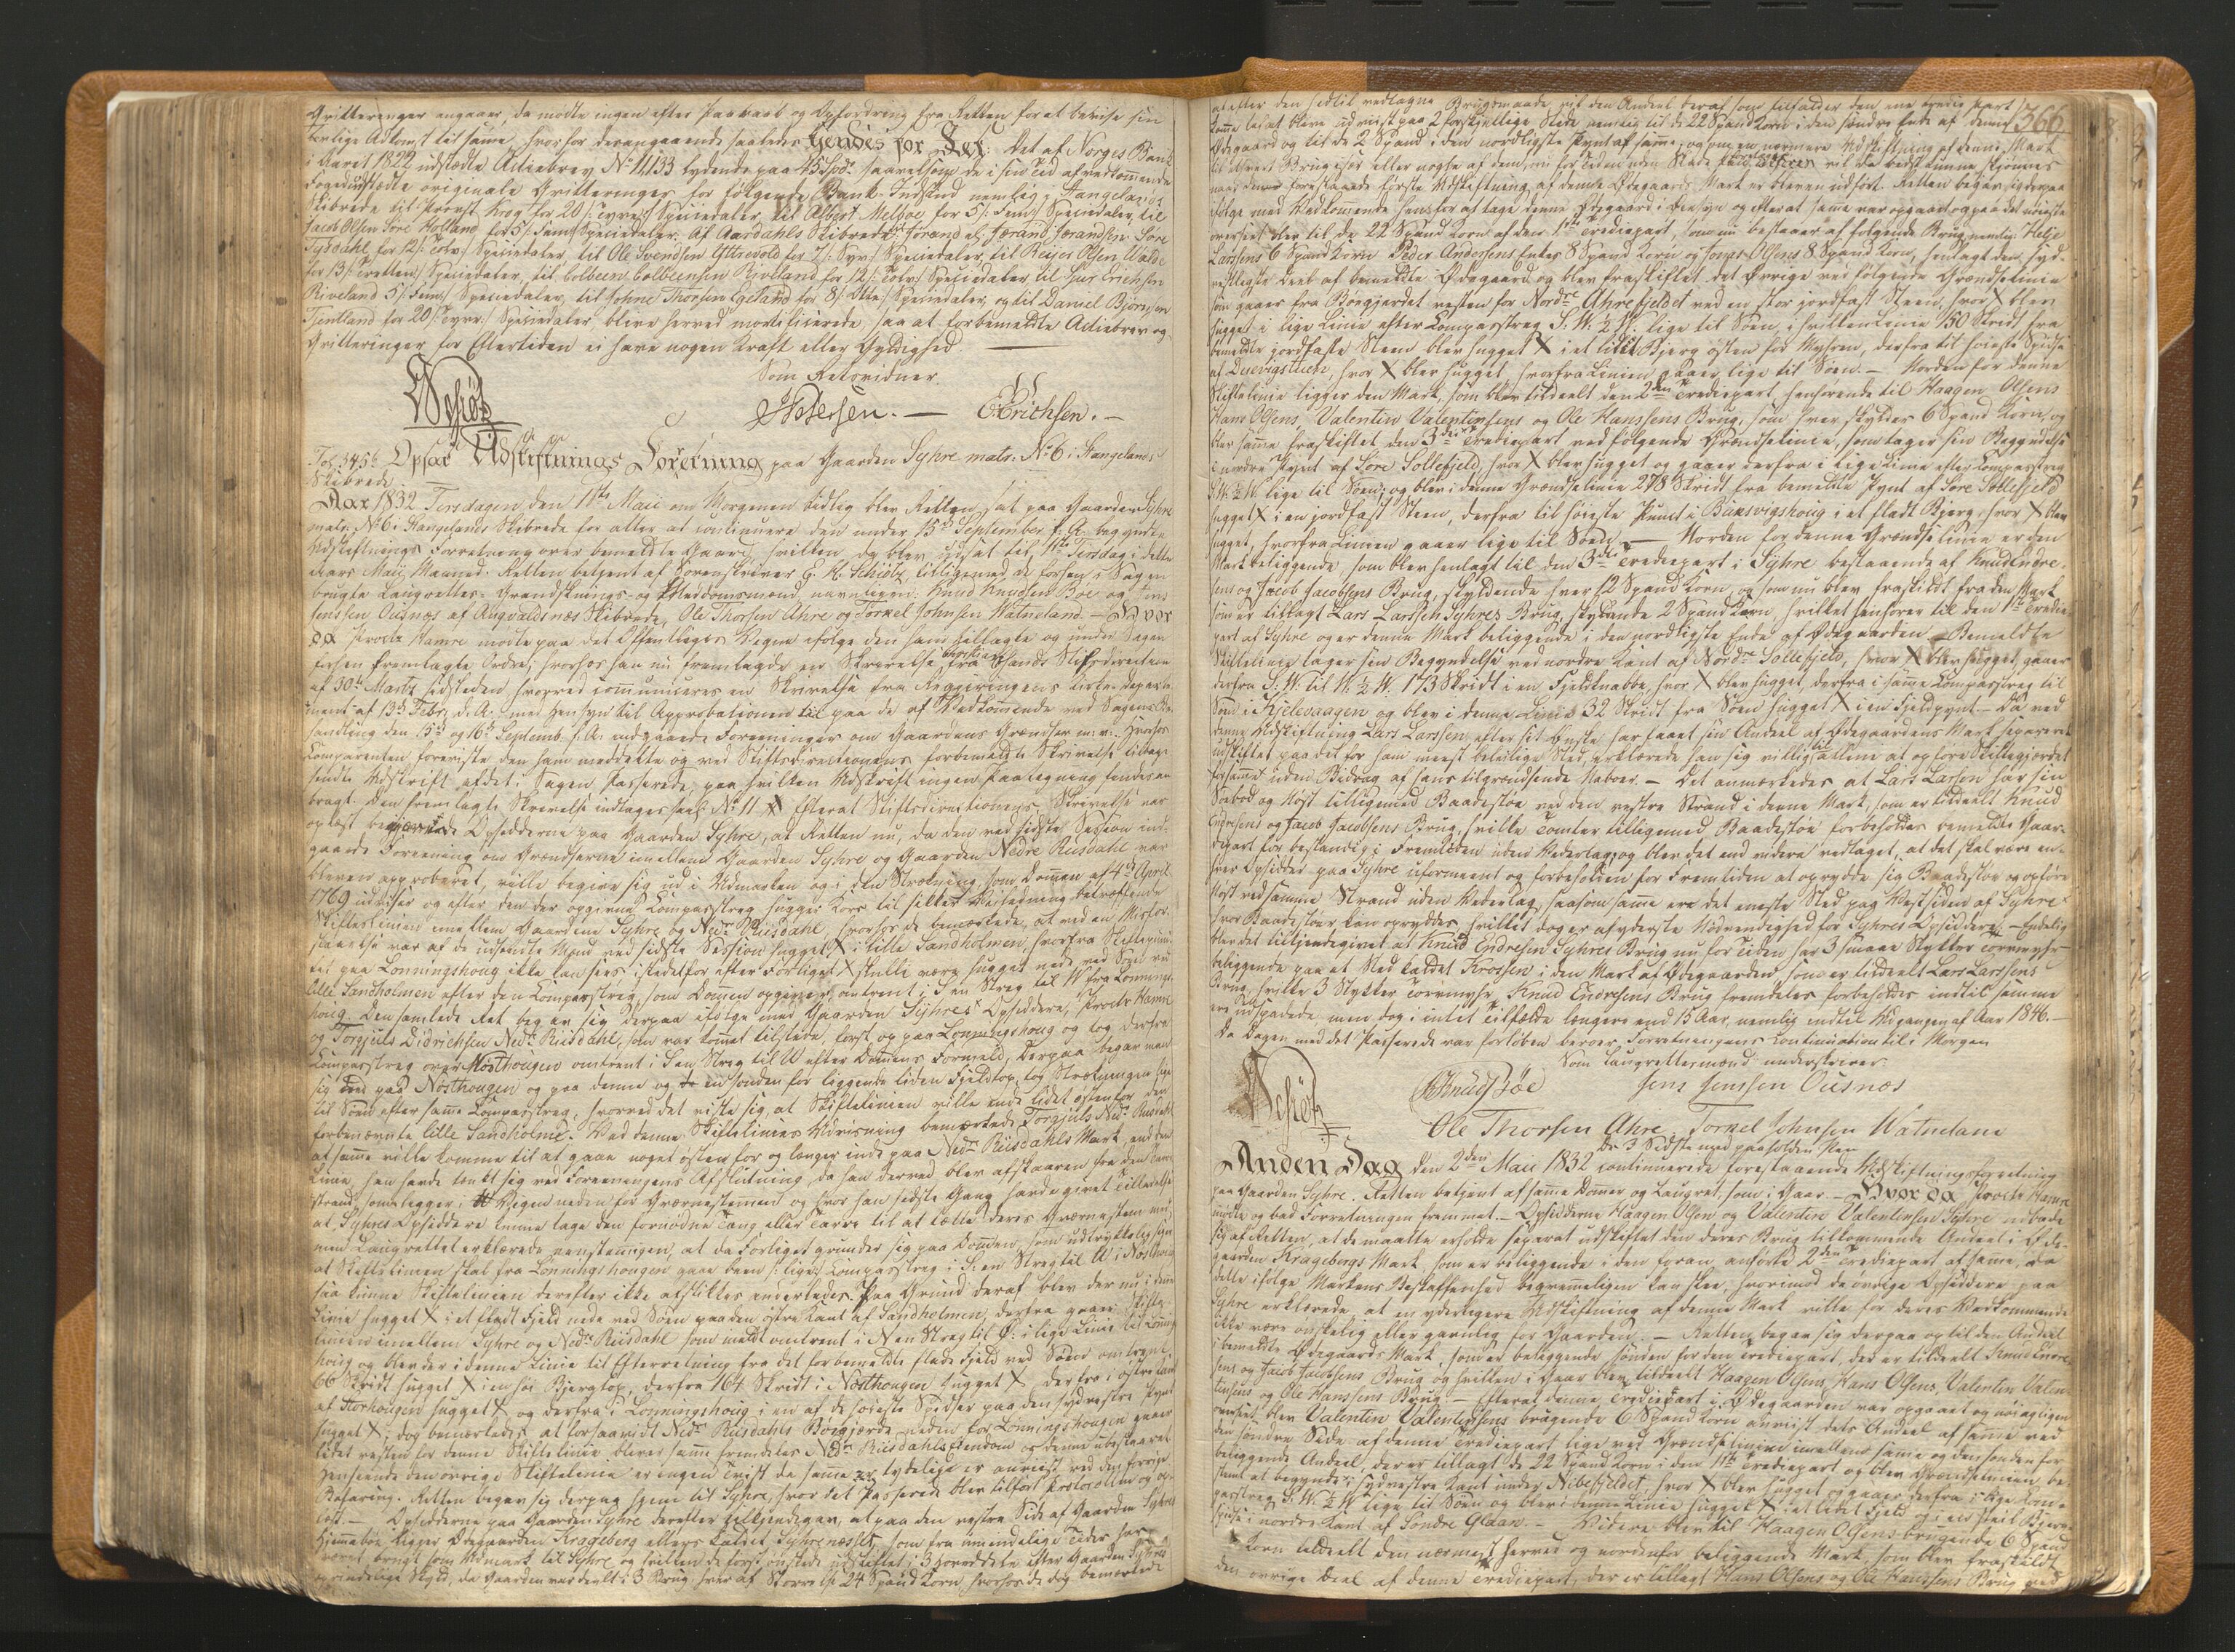 Qvitteringer angaaer, da mødte ingen efter Paaraab og Opfordring fra Retten for at bevise sin
lovlige Adkomst til samme, hvorfor derangaaende saaledes Kjendes for Ret: Det af Norges Bank
i Aaret 1822 udstædte Actiebrev No 11,133 lydende paa 45 Spd. saavelsom de i sin Tid af vedkommende
Foged udstædte originale Qvitteringer for følgende Bank-Indskud nemlig Hangelands
Skibrede til Provst Krog for 20 /: tyve :/ Speciedaler, til Albert Melhoe for 5 /: fem :/ Speciedaler, til
Jacob Olsen Søre Holland for 5 /: fem :/ Speciedaler. Af Aardahls Skibrede: Jørand el. Jærand Jærandsen Søre
Tysdahl for 12 /: tolv :/ Speciedaler, til Ole Svendsen Yttrevold for 7 /: syv :/ Speciedaler, til Reijer Olsen Valde
for 13 /: tretten :/ Speciedaler, til Colbeen Colbeensen Riveland for 12 /: tolv :/ Speciedaler, til Sjur Erichsen
Riveland 5 /: fem :/ Speciedaler, til Johne Thorsen Egeland for 8 /: otte :/ Speciedaler, og til Daniel Bjørnsen
Tjentland for 20 /: tyve :/ Speciedaler, blive herved mortificerede, saa at forbemeldte Actiebrev og
Qvitteringer for Eftertiden ei have nogen Kraft eller Gyldighed.
Som Retsvidner
Schiøtz
Petersen. — Erichsen. —
Fol. 345b Opsat Udskiftnings Forretning paa Gaarden Syhre matr: No 6 i Hangelands
Skibrede.
Aar 1832 Tirsdagen den 1ste Maii om Morgenen tidlig blev Retten sat paa Gaarden Syhre
matr: No 6 i Hangelands Skibrede for atter at continuere den under 15de September f. A. begyndte
Udskiftnings Forretning over bemeldte Gaard, hvilken da blev udsat til 1ste Tirsdag i dette
Aars Maij Maaned. Retten betjent af Sorenskriver E. H. Schiøtz tilligemed de forhen i Sagen
brugte Laugrettes- Grandsknings- og Meddomsmænd, navnligen: Knud Knudsen Boe og Jens
Jenssen Ousnæs af Augvaldsnæs Skibrede, Ole Thorsen Ahre og Tørkel Johnsen Watneland. — Hvor
da Procrtr Hamre mødte paa det Offentliges Vegne ifølge den ham tillagte og under Sagen
forhen fremlagte Ordre; hvorhos han nu fremlagde en Skrivelse fra Christiansands Stiftsdirection
af 30te Martz sidstleden, hvorved communiceres en Skrivelse fra Regjeringens Kirke-Departe-
ment af 13de Febr: d. A. med Hensyn til Approbationen til paa de af Vedkommende ved Sagens Be-
handling den 15de og 16de Septemb. f. A. indgaaede Foreeninger om Gaardens Grændser m. v. Hvorhos
Comparenten foreviste den ham meddeelte og ved Stiftsdirectionens forbemeldte Skrivelse tilbage-
sendte Udskrift af det i Sagen Passerede, paa hvilken Udskrift ingen Paategning fandes an-
bragt. Den fremlagte Skrivelse indtages saal. No 11 X Efterat Stiftsdirectionens Skrivelse var
oplæst begjærede Opsidderne paa Gaarden Syhre, at Retten nu, da den ved sidste Session ind-
gaaede Foreening om Grændserne imellem Gaarden Syhre og Gaarden Nedre Riisdahl var
bleven approberet, ville begive sig ud i Udmarken og i den Strækning som Dommen af 4de April
1769 udviser og efter den der opgivne Compasstreg hugge Kors til sikker Veiledning betræffende
Skiftelinien imellem Gaardene Syhre og Nedr Riisdahl, hvorhos de bemærkede, at ved en Misfor-
staaelse var af de udsendte Mænd ved sidste Session hugget X i lille Sandholmen, hvorfra Skiftepunc-
tet paa Lønningshoug ikke kan sees istedetfor efter Forliget X skulle være hugget nede ved Søen ved
lille Sandholmen efter den Compasstreg, som Dommen opgiver, omtrent i S en Streg til W fra Lønnings-
houg. Den samlede Ret begav sig derpaa ifølge med Gaarden Syhres Opsiddere, Procrtr Hamre
og Torgjuls Didrichsen Nedr Riisdahl, som var kommet tilstede, først op paa Lønningshoug og tog derfra
Compasstreg over Nøsthougen omtrent i S en Streg til W efter Dommens Formeld, derpaa begav man
sig ned paa Nøsthougen og paa denne og en sønden for liggende liden Fjeldtop, tog Strækningen igjen
til Søen efter samme Compasstreg, hvorved det viste sig, at Skiftelinien ville ende lidet østenfor den
forbenævnte lille Sandholme. Ved denne Skiftelinies Udvisning bemærkede Torgjuls Nedr Riisdahl
at samme ville komme til at gaae noget østen for og længer inde paa Nedr Riisdahls Mark, end den
Linie, han havde tænkt sig ved Foreeningens Afslutning, da han derved blev afskaaren fra den
Strand som ligger i Vigen neden for Qværnestemmen og hvor han sidste Gang havde givet Tilladelse
at Syhres Opsiddere kunne tage den fornødne Tang eller Tarre til at tætte deres Qværnestem med
men Laugrettet erklærede eenstemmigen, at da Forliget grunder sig paa Dommen, som udtrykkelig siger
at Skiftelinien skal fra Lønningshougen gaae been /: lige :/ Compasstreg i S. en Streg til W i Nøsthoug
saa kunne Skiftelinien derefter ikke afstikkes anderledes. Paa Grund deraf blev der nu i denne
Linie hugget X i et fladt Fjeld nede ved Søen paa den østre Kant af Sandholmen, derfra gaaer Skifte-
linien imellem Syhre og Nedr Riisdahl som meldt omtrent i N en Streg til Ø i lige Linie til Lønnings-
houg og blev der i denne Linie til Efterretning fra det forbemeldte flade Fjeld ved Søen omtrent
66 Skridt hugget X i en høi Bjergtop, derfra 164 Skridt i Nøsthougen hugget X derfra i østre Kant
af Storhougen hugget X og derfra i Lønningshoug i en af de høieste Spidser paa den sydvestre Pynt
hugget X; dog bemærkedes at forsaavidt Nedr Riisdahls Bøegjærde neden for Lønningshougen gaaer
lidet vesten for denne Skiftelinie bliver samme fremdeles Nedr Riisdahls Eiendom og denne ubeskaaret
Henseende den øvrige Skiftelinie er ingen Tvist da samme er tydelige er anviist ved den forrige
Befaring. Retten begav sig derpaa hjem til Syhre, hvor det Passerede blev tilført Protocollen og op-
læst. — Opsidderne paa Gaarden Syhre derefter tilkjendegav, at paa den vestre Side af Gaarden Syhres
Hjemmebøe ligger Ødegaarden Krageberg ellers kaldet Syhrenæsset, som fra umindelige Tider har
været brugt som Udmark til Syhre og hvilken de først ønskede udskiftet i 3 Hoveddele efter Gaarden Syhres
oprindelige Skyld, da Gaarden var deelt i 3 Brug, hver af Størrelse 24 Spand Korn, hvorhos de dog bemærkede
366
at efter den hidtil vedtagne Brugsmaade vil den Andeel deraf som tilfalder den ene Trediepart
komme til at blive udviist paa 2 forskjellige Steder nemlig til de 22 Spand Korn i den søndre Ende af denne
Ødegaard og til de 2 Spand i den nordligste Pynt af samme, og om en nærmere Udskiftning af denne Mark
til ethvert Brug især eller nogle af dem, nu for Tiden kan finde Sted vil de bedst kunne skjønnes
naar foreslaaede første Udskiftning af denne Ødegaards Mark er bleven udført. Retten begav sig derpaa
ifølge med Vedkommende hen for at tage denne Ødegaard i Øiesyn og efter at samme var opgaaet og paa det nøieste
overseet blev til de 22 Spand Korn af den 1ste Trediepart, som nu bestaaer af følgende Brug nemlig: Helje
Larssens 6 Spand Korn Peder Andersens Enkes 8 Spand Korn og Jonas Olsens 8 Spand Korn, henlagt den syd-
vestligste Deel af bemeldte Ødegaard og blev fraskiftet det Øvrige ved følgende Grændselinie
som gaaer fra Bøegjerdet vesten for Nordre Ahrefjeldet ved en stor jordfast Steen, hvor X blev
hugget i lige Linie efter Compasstreg S. W. ½ W. lige til Søen, i hvilken Linie 150 Skridt fra
bemeldte jordfaste Steen blev hugget X i et lidet Bjerg østen for Myhren, derfra til høieste Spidse
af Duevigslien, hvor X blev hugget, hvorfra Linien gaaer lige til Søen. — Norden for denne
Skiftelinie ligger den Mark, som blev tildeelt den 2den Trediepart, henhørende til Haagen Olsens
Hans Olsens, Valentin Valentinsens og Ole Hanssens Brug, som hver skylder 6 Spand Korn, og
blev samme fraskiftet den 3die Trediepart ved følgende Grændselinie, som tager sin Begyndelse
i nordre Pynt af Søre Sollefjeld, hvor X blev hugget og gaaer derfra i lige Linie efter Compasstreg
S. W. ½ W. lige til Søen; og blev i denne Grændselinie 278 Skridt fra bemeldte Pynt af Søre Sollefjeld
hugget X i en jordfast Steen, derfra til høieste Punct i Buksvigshoug i et fladt Bjerg, hvor X blev
hugget, hvorfra Linien gaaer lige til Søen. — Norden for denne Grændselinie er den
Mark beliggende, som blev henlagt til den 3die Trediepart i Syhre bestaaende af Knud Endre-
sens og Jacob Jacobsens Brug, skyldende hver 12 Spand Korn, og som nu blev fraskildt fra den Mark
som er tillagt Lars Larssen Syhres Brug, skyldende 2 Spand Korn, hvilket henhører til den 1ste Tredie-
part af Syhre og er denne Mark beliggende i den nordligste Ende af Ødegaarden. Bemeldte
Skiftelinie tager sin Begyndelse ved nordre Kant af Nordre Sollefjeld, hvor X blev hugget, gaaer
derfra S. W. til W. ½ W. 173 Skridt i en Fjeldknabbe, hvor X blev hugget, derfra i samme Compasstreg til
Søen i Kjelevaagen og blev i denne Linie 32 Skridt fra Søen hugget X i en Fjeldpynt. — Da ved
denne Udskiftning Lars Larssen, efter sit Ønske har faaet sin Andeel af Ødegaardens Mark separeret
udskiftet paa det for ham meest beleilige Sted, erklærede han sig villig til allene at opføre Skiftegjerdet
for samme uden Bidrag af hans tilgrændsende Naboer. — Det anmærkedes at Lars Larsen har sin
Søebod og Nøst tilligemed Baadestøe ved den vestre Strand i denne Mark, som er tildeelt Knud
Endresens og Jacob Jacobsens Brug, hvilke Tomter tilligemed Baadestøe forbeholdes bemeldte Gaar-
depart for bestandig i Fremtiden uden Vederlag; og blev det end videre vedtaget, at det skal være en-
hver Opsidder paa Syhre uformeent og forbeholden for Fremtiden at oprydde sig Baadestøe og opføre
Nøst ved samme Strand uden Vederlag, saasom samme er det eneste Sted paa Vestsiden af Syhre
hvor Baadestøer kan opryddes, hvilket dog er af yderste Nødvendighed for Syhres Opsiddere. — Endelig
blev det tilkjendegivet at Knud Endresen Syhres Brug nu for Tiden har 3 smaae Stykker Torvmyhr
beliggende paa et Sted kaldet Krossen i den Mark af Ødegaarden som er tildeelt Lars Larssens
Brug, hvilke 3 Stykker Torvmyhr, Knud Endresens Brug fremdeles forbeholdes indtil samme
ere udspadede, men dog i intet Tilfælde længere end 15 Aar, nemlig indtil Udgangen af Aar 1846. —
Da Dagen med det Passerede var forløben beroer Forretningens Continuation til i Morgen.
Som Laugrettesmænd underskriver:
Schiøtz
K Knuds Bøe Jens Jenssen Ousnæs
Ole Thorsen Ahre. Tørkel Johnsen Watneland
De 3 Sidste med paaholden Pen
Anden Dag den 2den Maii 1832 continuerede forestaaende Udskiftningsforretning
paa Gaarden Syhre. Retten betjent af samme Dommer og Laugret, som i Gaar. — Hvor da Procrtr Hamre
mødte og bad Forretningen fremmet. — Opsidderne Haagen Olsen og Valentin Valentinsen Syhre udbade
sig af Retten, at de maatte erholde separat udskiftet den deres Brug tilkommende Andeel i Øde-
gaarden Kragebergs Mark, som er beliggende i den foran anførte 2den Trediepart af samme, da
dette ifølge Markens Beskaffenhed beqvemmeligen kan skee, hvorimod de øvrige Opsiddere paa
Syhre erklærede at en yderligere Udskiftning af denne Mark ville for deres Vedkommende
ikke være ønskelig eller gavnlig for Gaarden. — Retten begav sig derpaa op til den Andeel
i bemeldte Ødegaards Mark, som er beliggende sønden for den Trediepart, der er tildeelt Knud Endre-
sens og Jacob Jacobsens Brug og hvilken i Gaar blev tildeelt Haagen Olsens, Hans Olsens, Valentin Valen-
tinsens og Ole Hanssens Brug. — Efterat denne Trediepart i Ødegaarden var opgaaet og nøiagtigen
overseet blev Valentin Valentinsens brugende 6 Spand Korn anviist dets Andeel af samme ved
den søndre Side af denne Trediepart lige ved Grændselinien imellem samme og den sønden for
beliggende Andeel, der er tillagt de 22 Spand Korn i den 1ste Trediepart og blev Grændselinien be-
stemt at begynde: i sydvestre Kant under Nibefjeldet, hvor X blev hugget og gaaer derfra i lige Com-
passtreg S. W. ½ W. lige til Søen og blev i denne Linie hugget X i et lidet Fjeld og i en steil Bjerg-
spidse i nordre Kant af Søndre Glaan. — Videre blev til Haagen Olsens brugende 6 Spand
Korn tildeelt den nærmest herved og nordenfor beliggende Mark, som blev fraskildt
den øvrige Deel af denne Trediepart, der er tillagt Hans Olsens og Ole Hanssens Brug ved